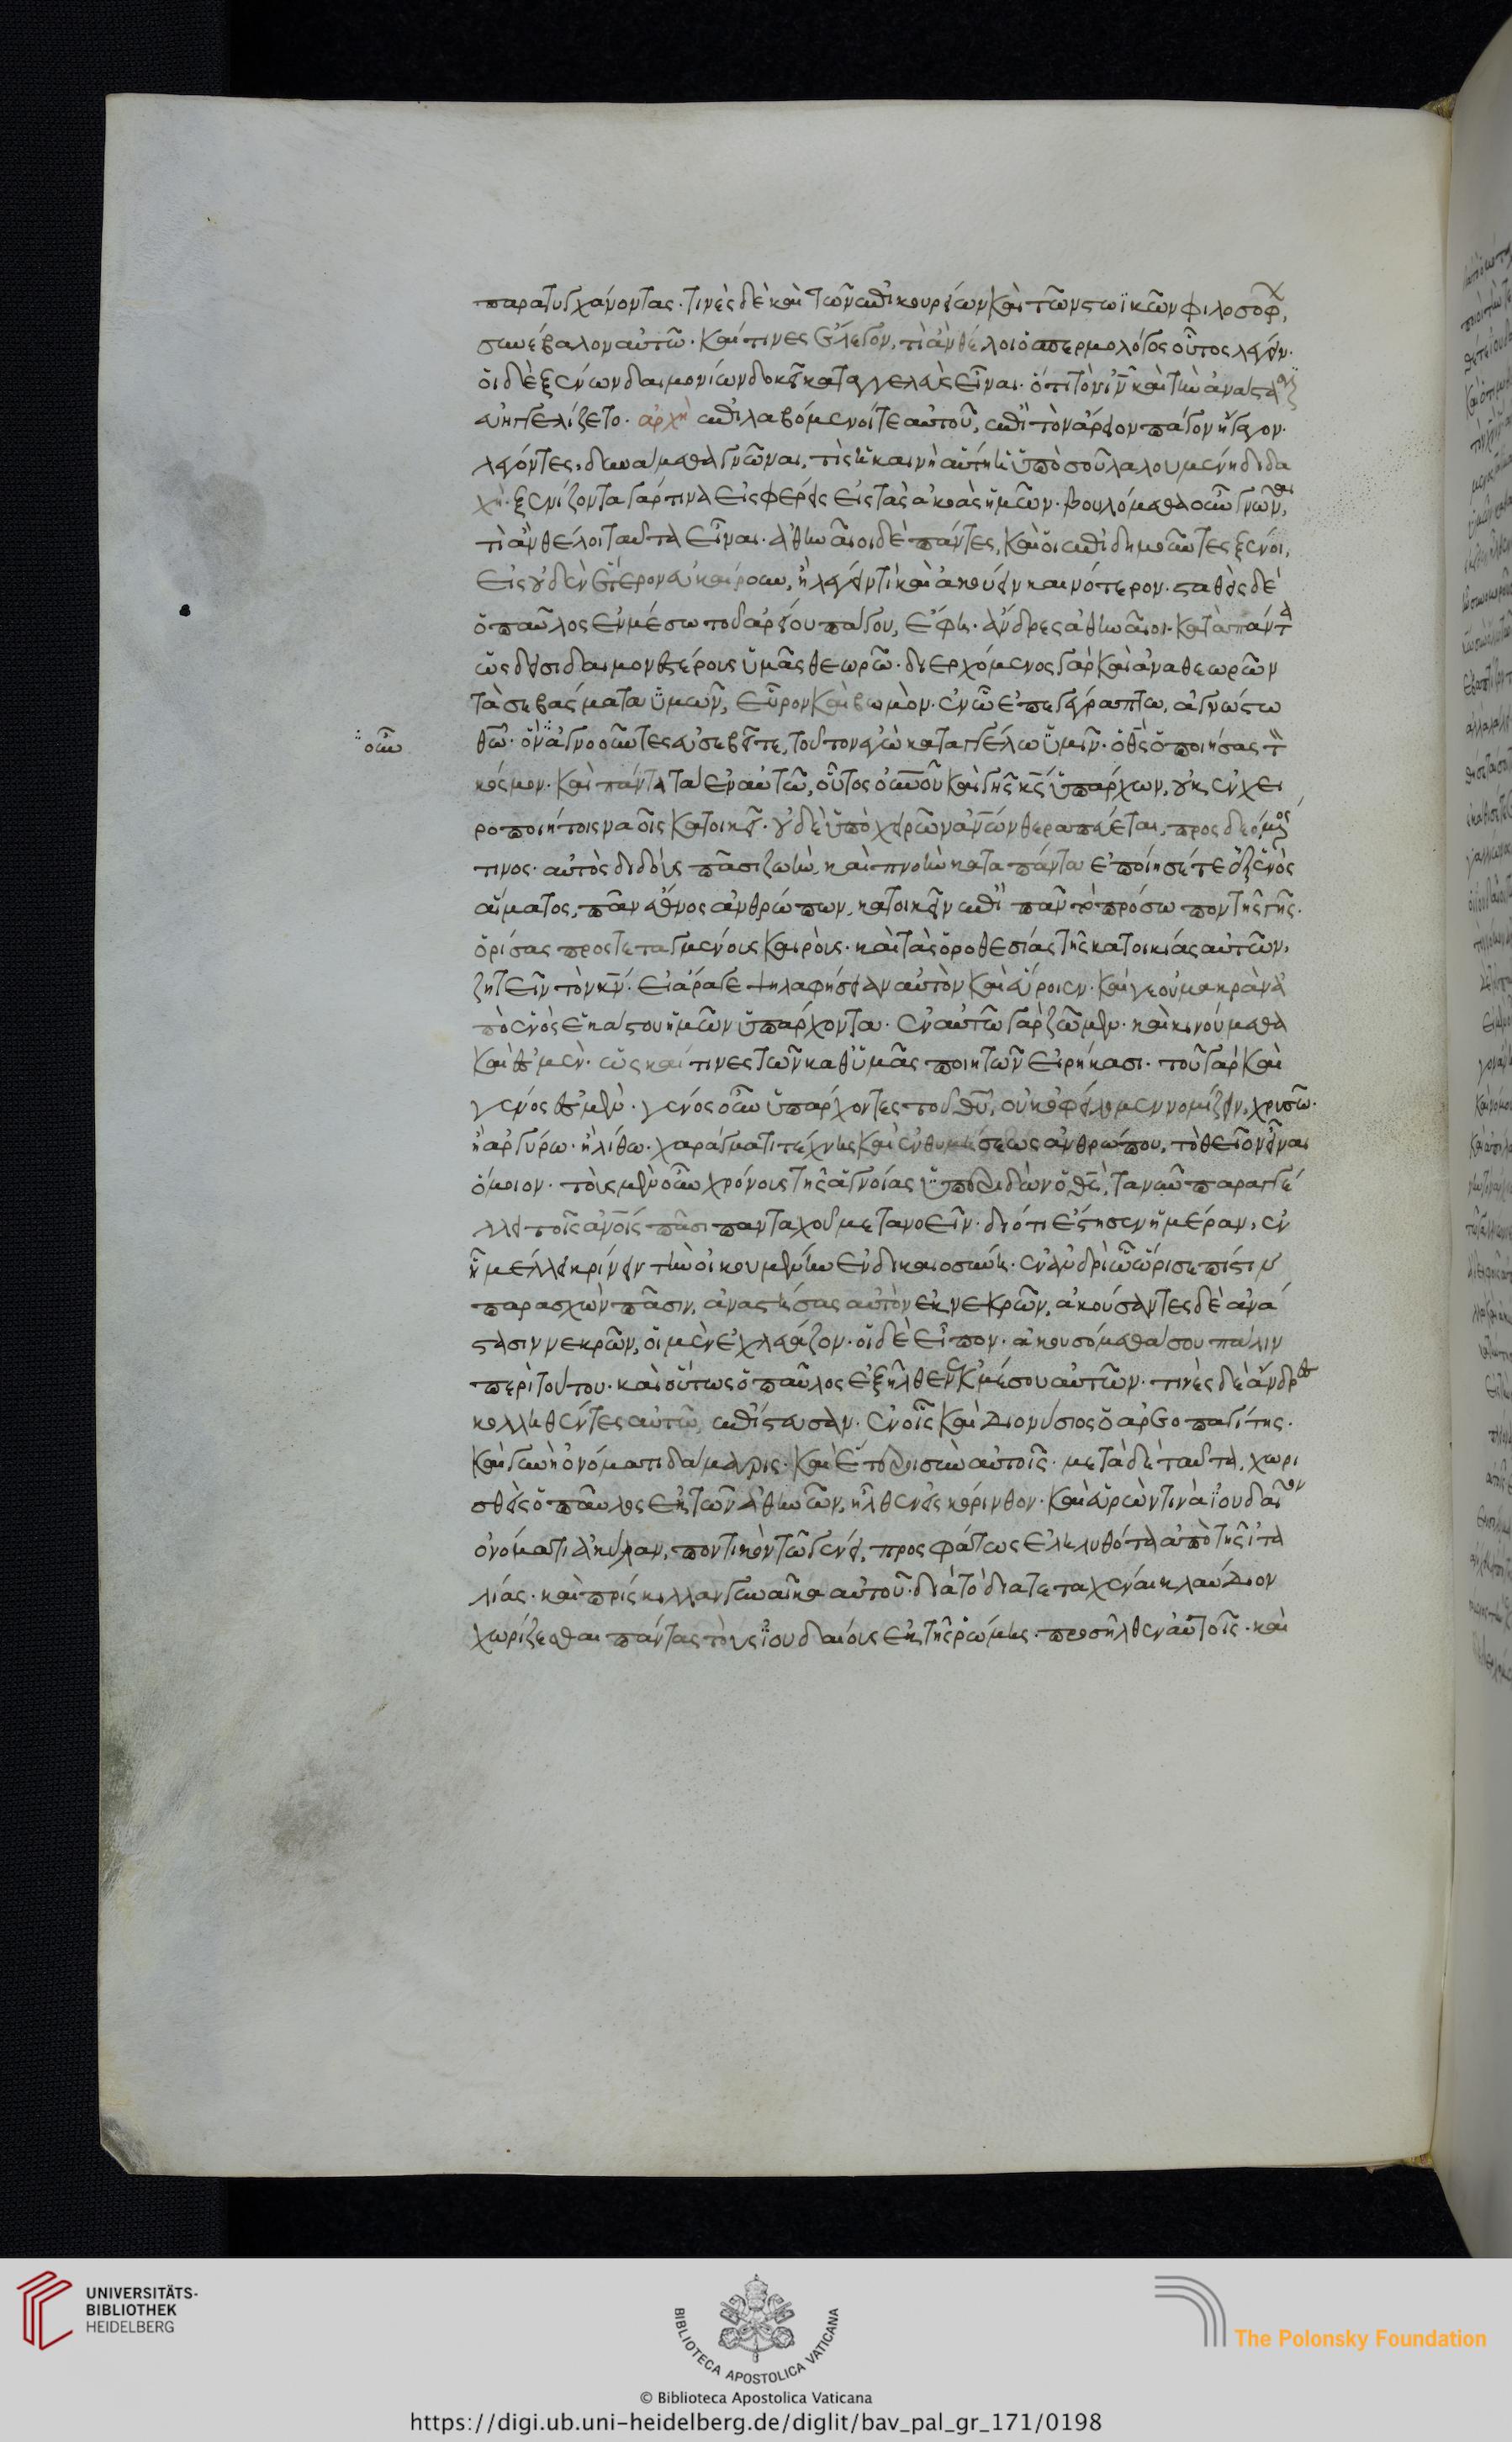 παρατυγχάνοντας. τινὲς δὲ καὶ τῶν ἐπικουρείων καὶ τῶν στωϊκῶν φιλοσόφ,
συνέβαλον αὐτῶ. καί τινες ἔλεγον, τί ἂν θέλοι ὁ σπερμολόγος οὗτος λέγειν.
οἱ δὲ ξένων δαιμονίων δοκεῖ καταγγελεὺς εἶναι. ὅτι τὸν ιν καὶ τὴν ἀνάστασιν
εὐηγγελίζετο. ἀρχὴ ἐπιλαβόμενοί τε αὐτοῦ, ἐπὶ τὸν ἄρειον πάγον ἤγαγον.
λέγοντες, δυνάμεθα γνῶναι, τίς ἡ καινὴ αὕτη ἡ ὑπὸ σοῦ λαλουμένη διδα
χή. ξενίζοντα γάρ τινα εἰσφέρεις εἰς τὰς ἀκοὰς ἡμῶν. βουλόμεθα οὖν γνῶναι,
τί ἂν θέλοι ταῦτα εἶναι. ἀθηναῖοι δὲ πάντες, καὶ οἱ ἐπιδημοῦντες ξένοι,
εἰς οὐδὲν ἕτερον εὐκαίρουν, ἢ λέγειν τί καὶ ἀκούειν καινότερον. σταθεὶς δὲ
ὁ παῦλος ἐν μέσω τοῦ ἀρείου πάγου, ἔφη. ἄνδρες ἀθηναῖοι. κατὰ πάντα
ὡς δεισιδαιμονεστέρους ὑμᾶς θεωρῶ. διερχόμενος γὰρ καὶ ἀναθεωρῶν
τὰ σεβάσματα ὑμῶν, εὗρον καὶ βωμὸν. ἐν ὧ ἐπεγέγραπτω, ἀγνώστω
οὖν
θω. ὃν ἀγνοοῦντες εὐσεβεῖτε, τοῦτον ἐγὼ καταγγέλω ὑμῖν. ὁ θς ὁ ποιήσας τ
κόσμον. καὶ πάντα τὰ ἐν αὐτῶ, οὗτος οὐνου καὶ γῆς κς ὑπάρχων, οὐκ ἐν χει
ροποιήτοις ναοῖς κατοικεῖ. οὐδὲ ὑπὸ χειρῶν ανων θεραπεύεται, προσδεόμενος
τινος. αὐτὸς διδοὺς πᾶσι ζωὴν, καὶ πνοὴν κατα πάντα ἐποίησέ τε ἐξ ἑνὸς
αἵματος, πᾶν ἔθνος ἀνθρώπων, κατοικεῖν ἐπὶ πᾶν τὸ πρόσωπον τῆς γῆς.
ὁρίσας προστεταγμένους καιροὺς. καὶ τὰς ὁροθεσίας τῆς κατοικίας αὐτῶν,
ζητεῖν τὸν κν. εἰ ἄραγε ψηλαφήσειαν αὐτὸν καὶ εὕροιεν. καί γε οὐ μακρὰν ἀ
πὸ ἑνὸς ἑκάστου ἡμῶν ὑπάρχοντα. ἐν αὐτῶ γὰρ ζῶμεν. καὶ κινούμεθα
καὶ ἐσμὲν. ὥς καί τινες τῶν καθ ὑμᾶς ποιητῶν εἰρήκασι. τοῦ γὰρ καὶ
γένος ἐσμὲν. γένος οὖν ὑπάρχοντες τοῦ θυ, οὐκ ὀφείλομεν νομίζειν, χρυσῶ.
ἢ ἀργύρω. ἢ λίθω. χαράγματι τέχνης καὶ ἐνθυμήσεως ἀνθρώπου, τὸ θεῖον εἶναι
ὅμοιον. τοὺς μὲν οὖν χρόνους τῆς ἀγνοίας ὑπεριδὼν ὁ θς, τανῦν παραγγέ
λλει τοῖς ανοις πᾶσι πανταχοῦ μετανοεῖν. διότι ἔστησεν ἡμέραν, ἐν
ἧ μέλλει κρίνειν τὴν οἰκουμένην ἐν δικαιοσύνη. ἐν ἀνδρὶ ὧ ὥρισε πίστιν
παρασχὼν πᾶσιν, ἀναστήσας αὐτὸν ἐκ νεκρῶν, ἀκούσαντες δὲ ἀνά
στασιν νεκρῶν, οἱ μὲν ἐχλεύαζον. οἱ δὲ εἶπον. ἀκουσόμεθα σου πάλιν
περὶ τούτου. καὶ οὕτως ὁ παῦλος ἐξῆλθεν ἐκ μέσου αὐτῶν. τινὲς δὲ ἄνδρες
κολληθέντες αὐτῶ ἐπίστευσαν. ἐν οἷς καὶ διονύσιος ὁ ἀρεοπαγίτης.
καὶ γυνὴ ὀνόματι δάμαρις. καὶ ἕτεροι σὺν αὐτοῖς. μετὰ δὲ ταῦτα, χωρι
σθεὶς ὁ παῦλος ἐκ τῶν ἀθηνῶν, ἦλθεν εἰς κόρινθον. καὶ εὑρών τινὰ ἰουδαῖον
ὀνόματι ἀκύλαν, ποντικὸν τῶ γένει, προσφάτως ἐληλυθότα ἀπὸ τῆς ἰτα
λίας. καὶ πρίσκιλλαν γυναῖκα αὐτοῦ. διὰ τὸ διατεταχέναι κλαύδιον
χωρίζεσθαι πάντας τοὺς ἰουδαίους ἐκ τῆς ῥώμης. προσῆλθεν αὐτοῖς. καὶ
UNIVERSITÄTS-
BIBLIOTHEK
HEIDELBERG
BIBLIOTECA APOSTOLICA VATICANA
The Polonsky Foundation
© Biblioteca Apostolica Vaticana
https://digi.ub.uni-heidelberg.de/diglit/bav_pal_gr_171/0198